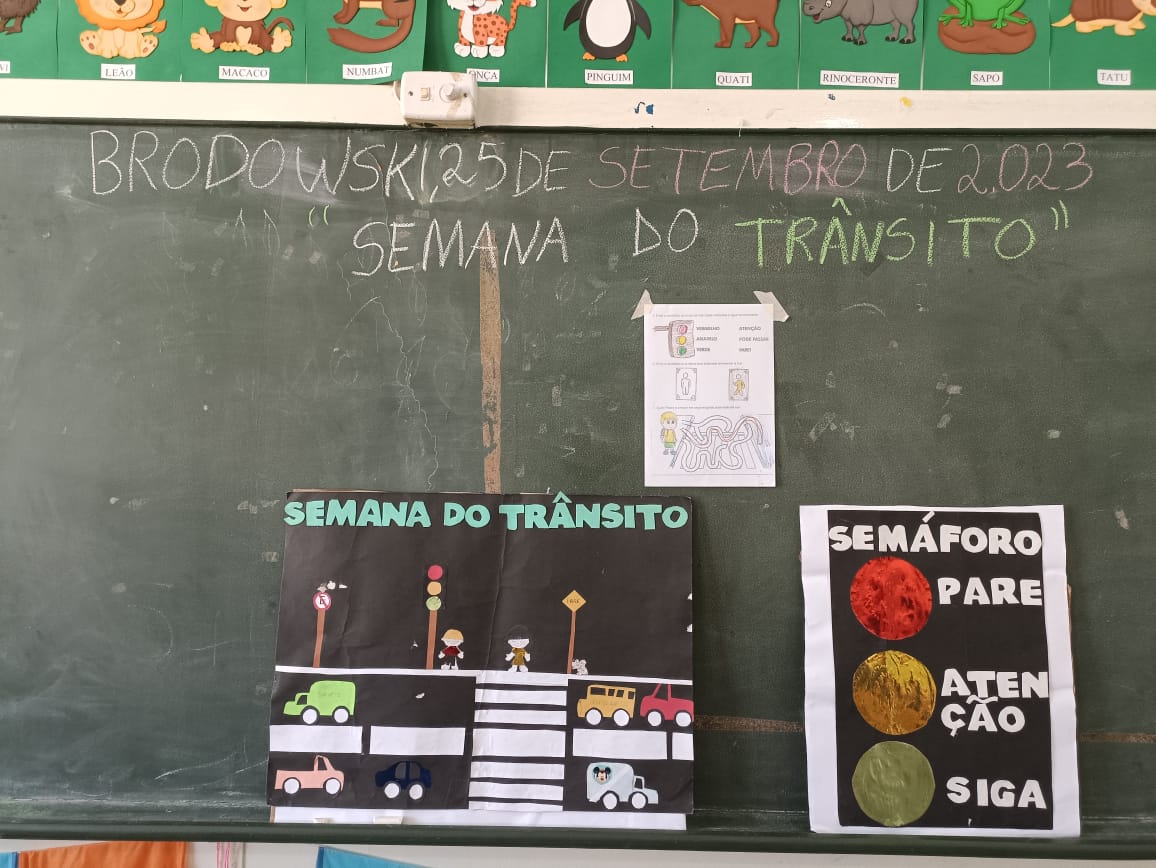 LEÃO
MACACO
NUMBAT
ONÇA
PINGUIM
QUATI
RINOCERONTE
SAPO
TATU
BRODOWSKI, 25 DE SETEMBRO DE 2.023
"SEMANA DO TRÂNSITO"
VERMELHO ATENÇÃO
AMARELO PODE PASSAR
VERDE PARE!
SEMANA DO TRÂNSITO
SEMÁFORO
PARE
ATEN
ÇÃO
SIGA